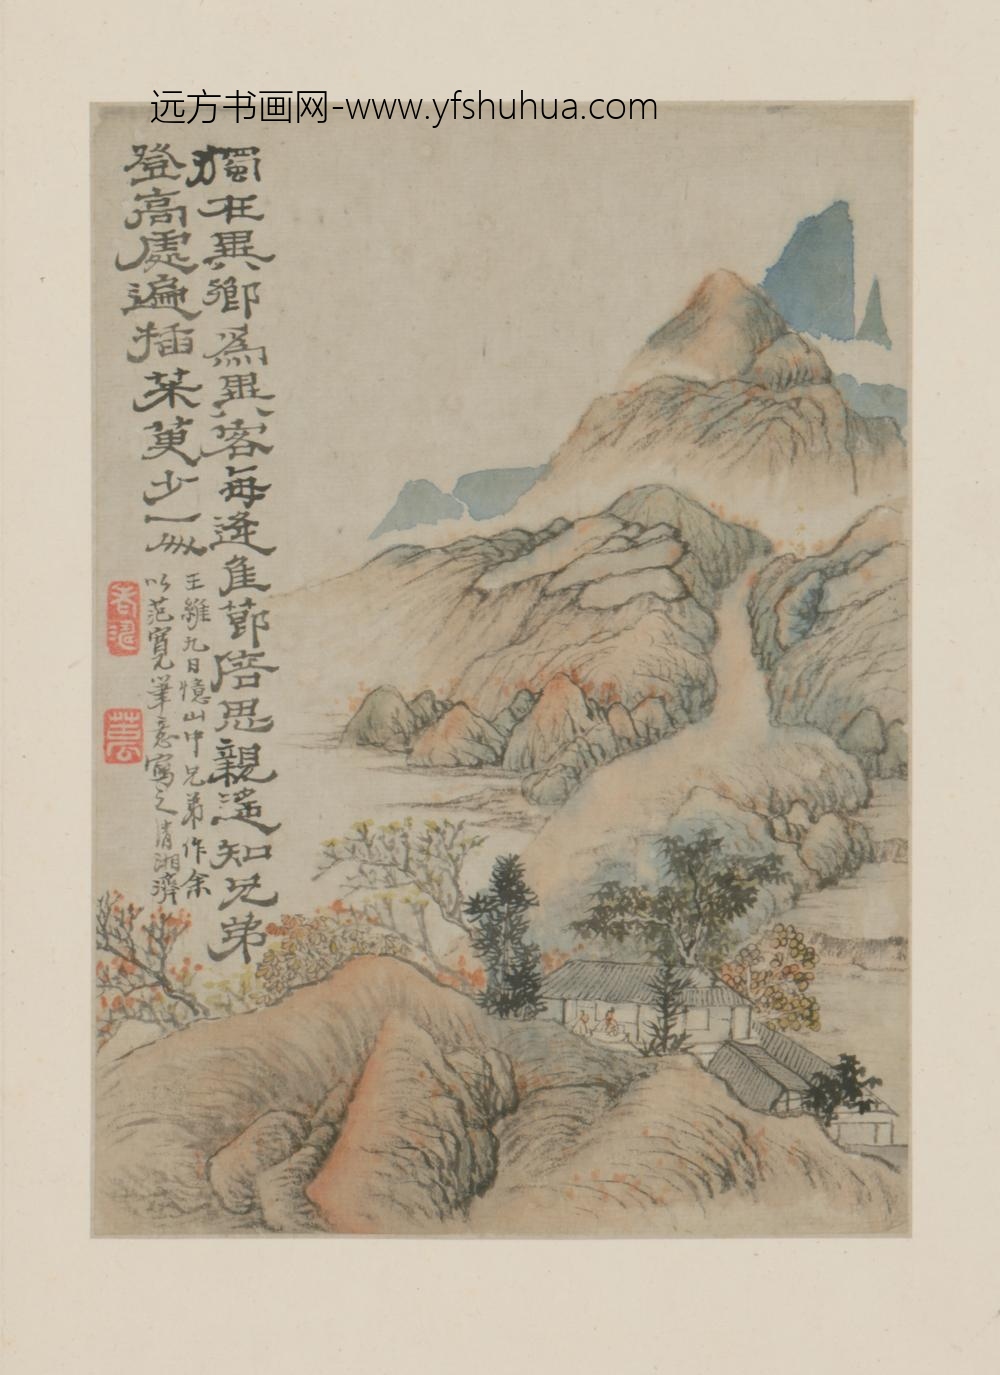 远方书画网-www.yfshuhua.com
獨在異鄉為異客每逢佳節倍思親遙知兄弟
登高處遍插茱萸少一人
王維九日憶山中兄弟作余
以范寬筆意寫之清湘濟